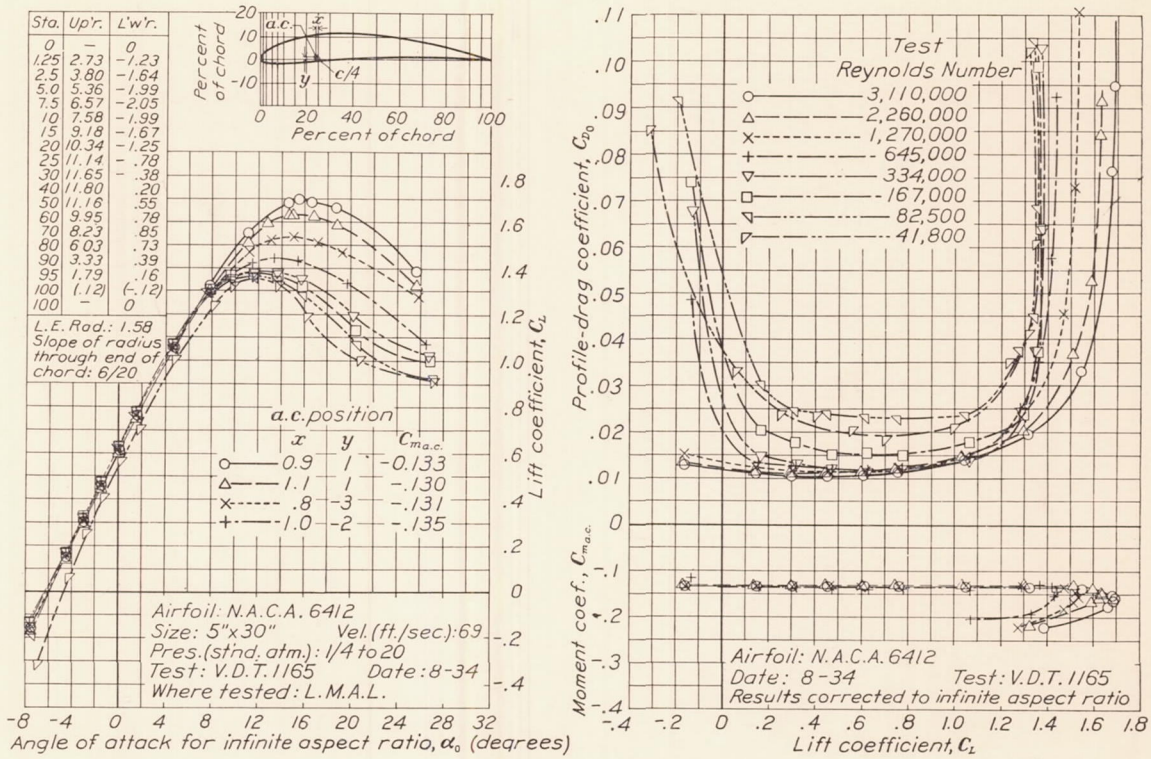 Sta. Up'r. L'w'r.
0 – 0
1.25 2.73 -1.23
2.5 3.80 -1.64
5.0 5.36 -1.99
7.5 6.57 -2.05
10 7.58 -1.99
15 9.18 -1.67
20 10.34 -1.25
25 11.14 - .78
30 11.65 - .38
40 11.80 .20
50 11.16 .55
60 9.95 .78
70 8.23 .85
80 6.03 .73
90 3.33 .39
95 1.79 .16
100 (.12) (-.12)
100 – 0
L.E. Rad.: 1.58
Slope of radius
through end of
chord: 6/20
Percent
of chord
20
10
0
-10
a.c.
x
y
c/4
0 20 40 60 80 100
Percent of chord
1.8
1.6
1.4
1.2
1.0
.8
.6
.4
.2
0
-.2
-.4
Lift coefficient, CL
a.c. position
x y Cma.c.
0.9 1 -0.133
1.1 1 -.130
.8 -3 -.131
1.0 -2 -.135
Airfoil: N.A.C.A. 6412
Size: 5"x30" Vel.(ft./sec.): 69
Pres.(st'nd. atm.): 1/4 to 20
Test: V.D.T. 1165 Date: 8-34
Where tested: L.M.A.L.
-8 -4 0 4 8 12 16 20 24 28 32
Angle of attack for infinite aspect ratio, α0 (degrees)
.11
.10
.09
.08
.07
.06
.05
.04
.03
.02
.01
0
-.1
-.2
-.3
-.4
Profile-drag coefficient, CD0
Moment coef., Cma.c.
Test
Reynolds Number
3,110,000
2,260,000
1,270,000
645,000
334,000
167,000
82,500
41,800
Airfoil: N.A.C.A. 6412
Date: 8-34 Test: V.D.T. 1165
Results corrected to infinite aspect ratio
-.4 -.2 0 .2 .4 .6 .8 1.0 1.2 1.4 1.6 1.8
Lift coefficient, CL